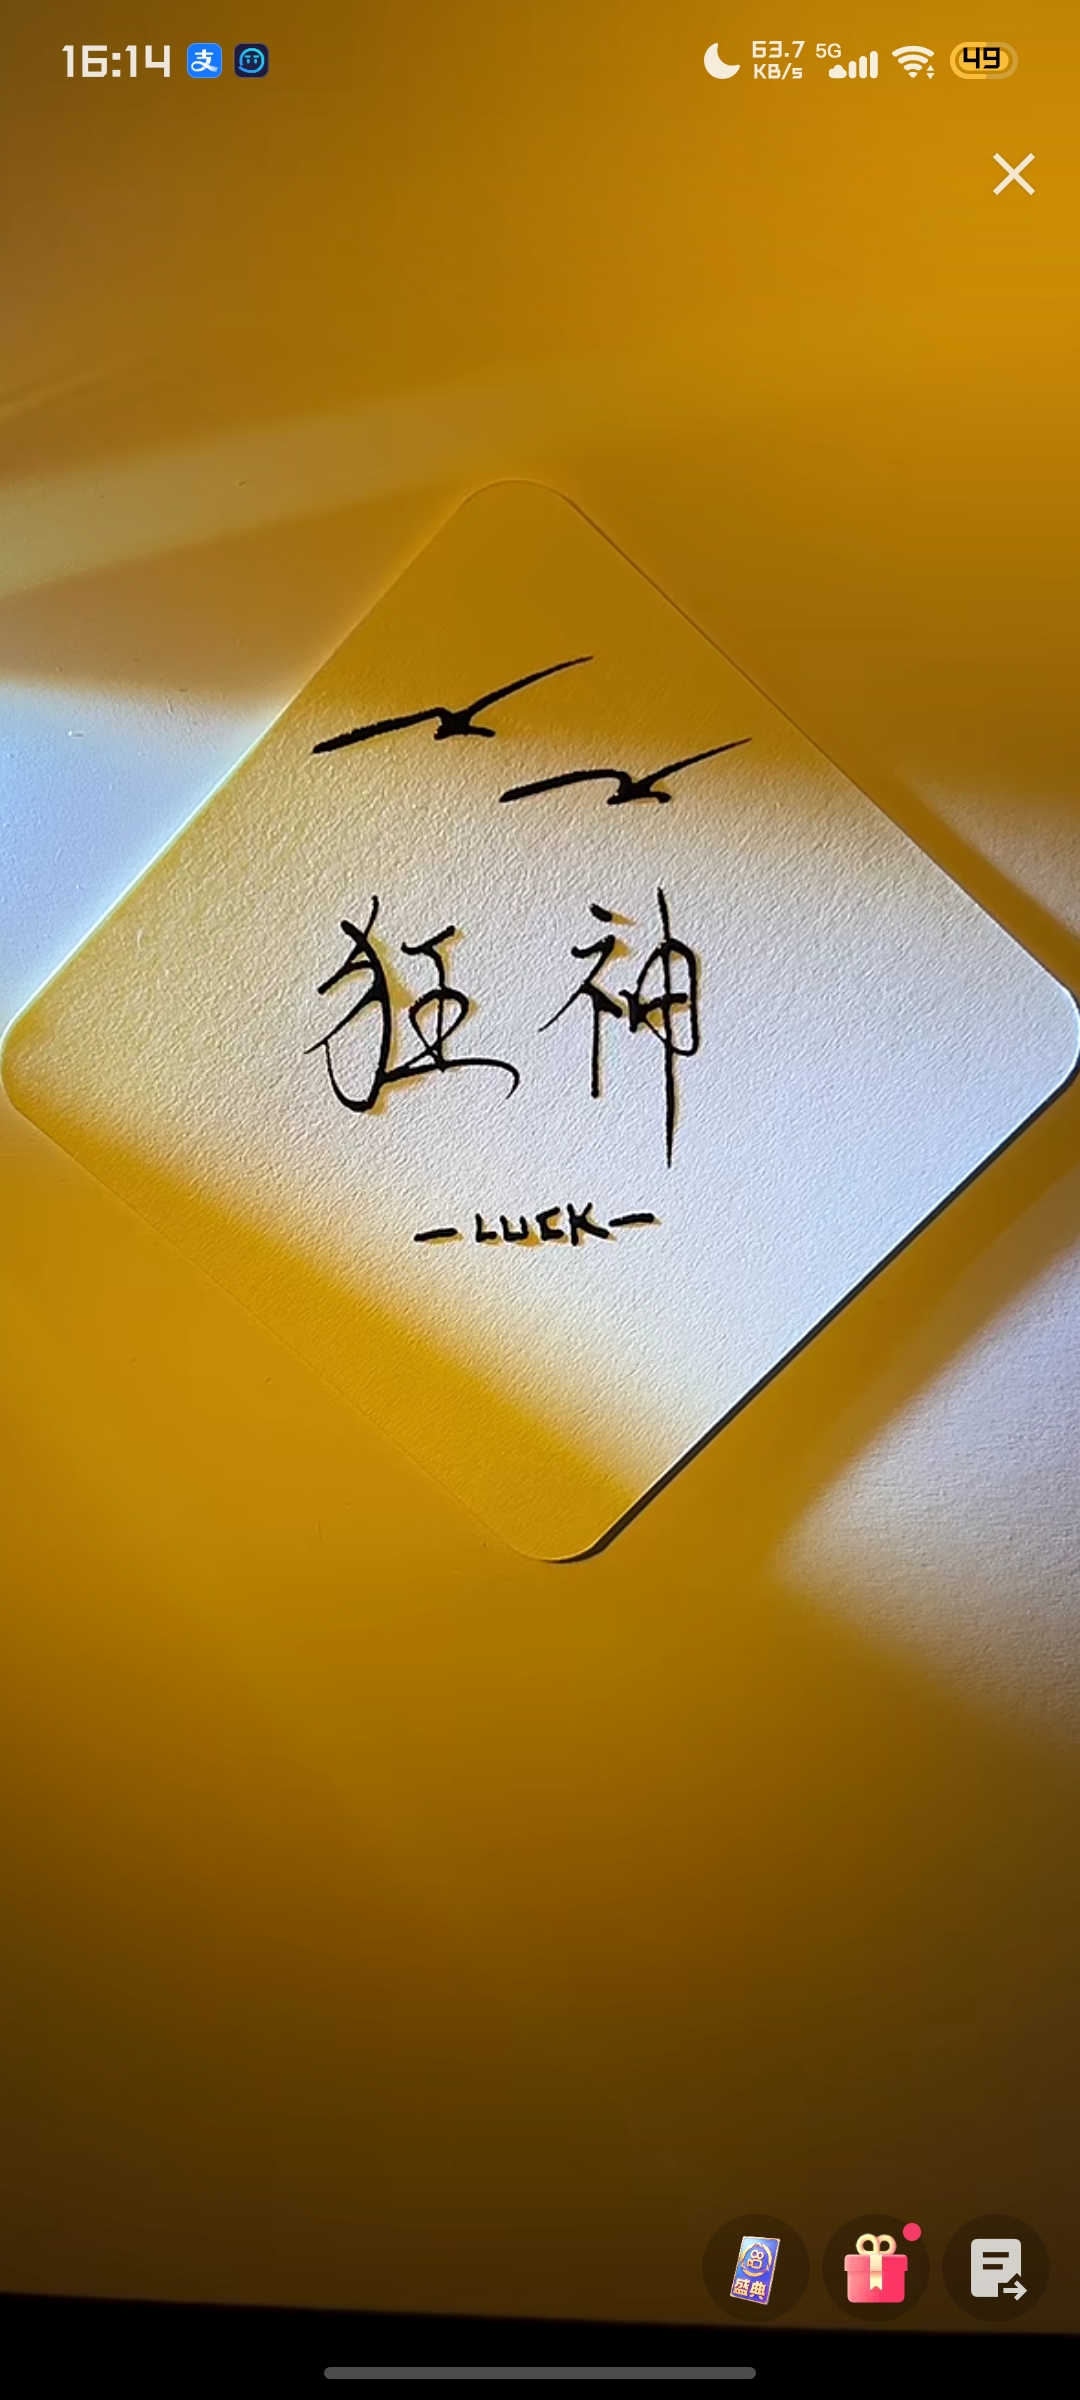 16:14 支 63.7 KB/s 5G 49
狂神
-LUCK-
盛典